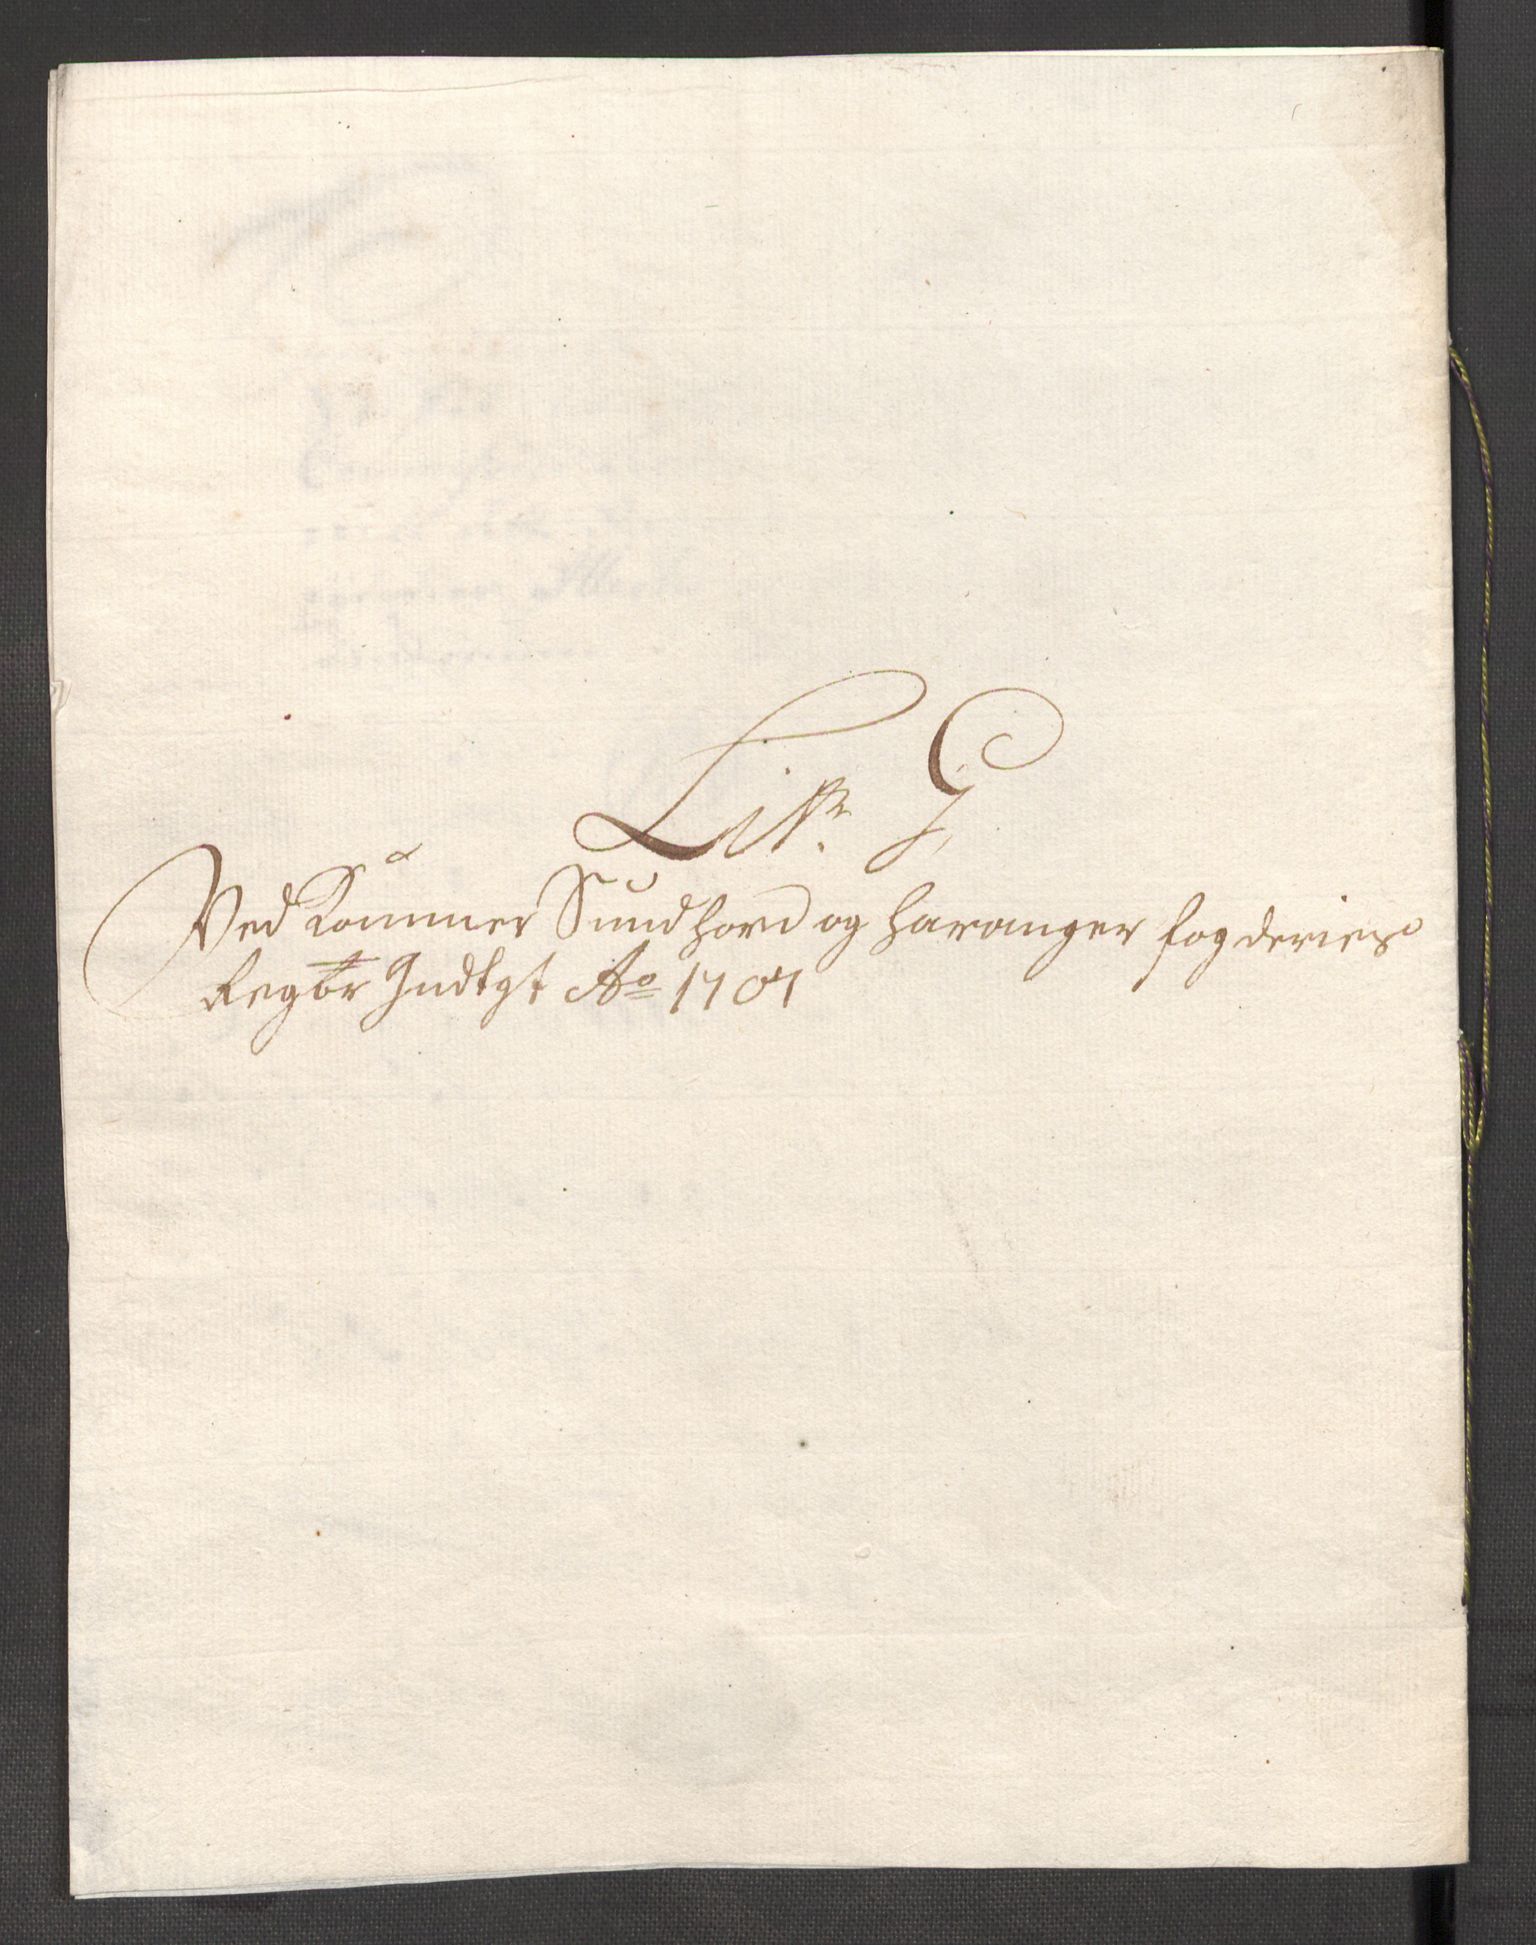 Litr. G,
Ved Kommer Sundhord og Haranger fogderies
Regbr Indtgt Ao 1707